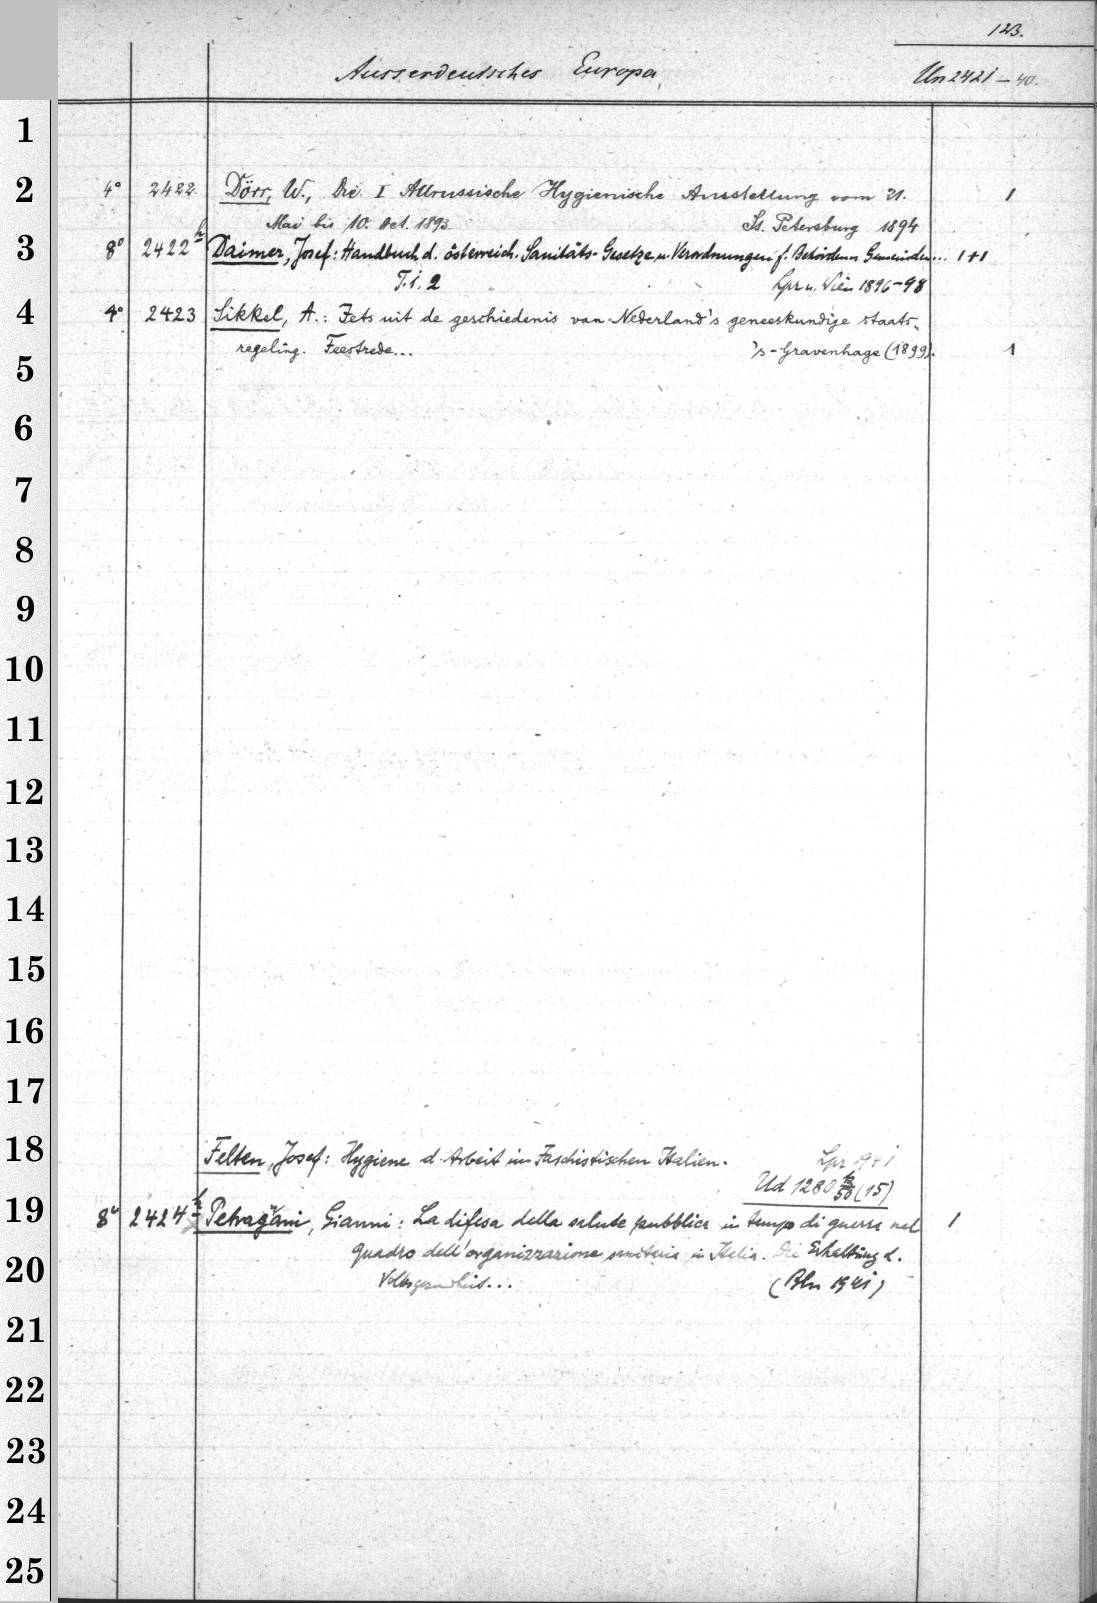 123.
Ausserdeutsches Europa Un 2421-40.
1
2 4° 2422 Dörr, W., Die I Allrussische Hygienische Ausstellung vom 21. 1
Mai bis 10. Oct. 1893. St. Petersburg 1894
3 8° 2422 Daimer, Josef: Handbuch d. österreich. Sanitäts-Gesetze u. Verordnungen f. Behörden Gemeinden... 1+1
T. 1. 2 Lpz u. Wien 1896-98
4 4° 2423 Sikkel, A.: Iets uit de geschiedenis van Nederland's geneeskundige staats-
regeling. Feestrede... 's-Gravenhage (1899). 1
5
6
7
8
9
10
11
12
13
14
15
16
17
18 Felten, Josef: Hygiene d. Arbeit im Faschistischen Italien. Lpz 1941
Ud 1280 50 (15)
19 8° 2424 Petragnani, Gianni: La difesa della salute pubblica in tempo di guerra nel 1
quadro dell'organizzazione sanitaria in Italia. Die Erhaltung d.
20 Volksgesundheit... (Bln 1941)
21
22
23
24
25